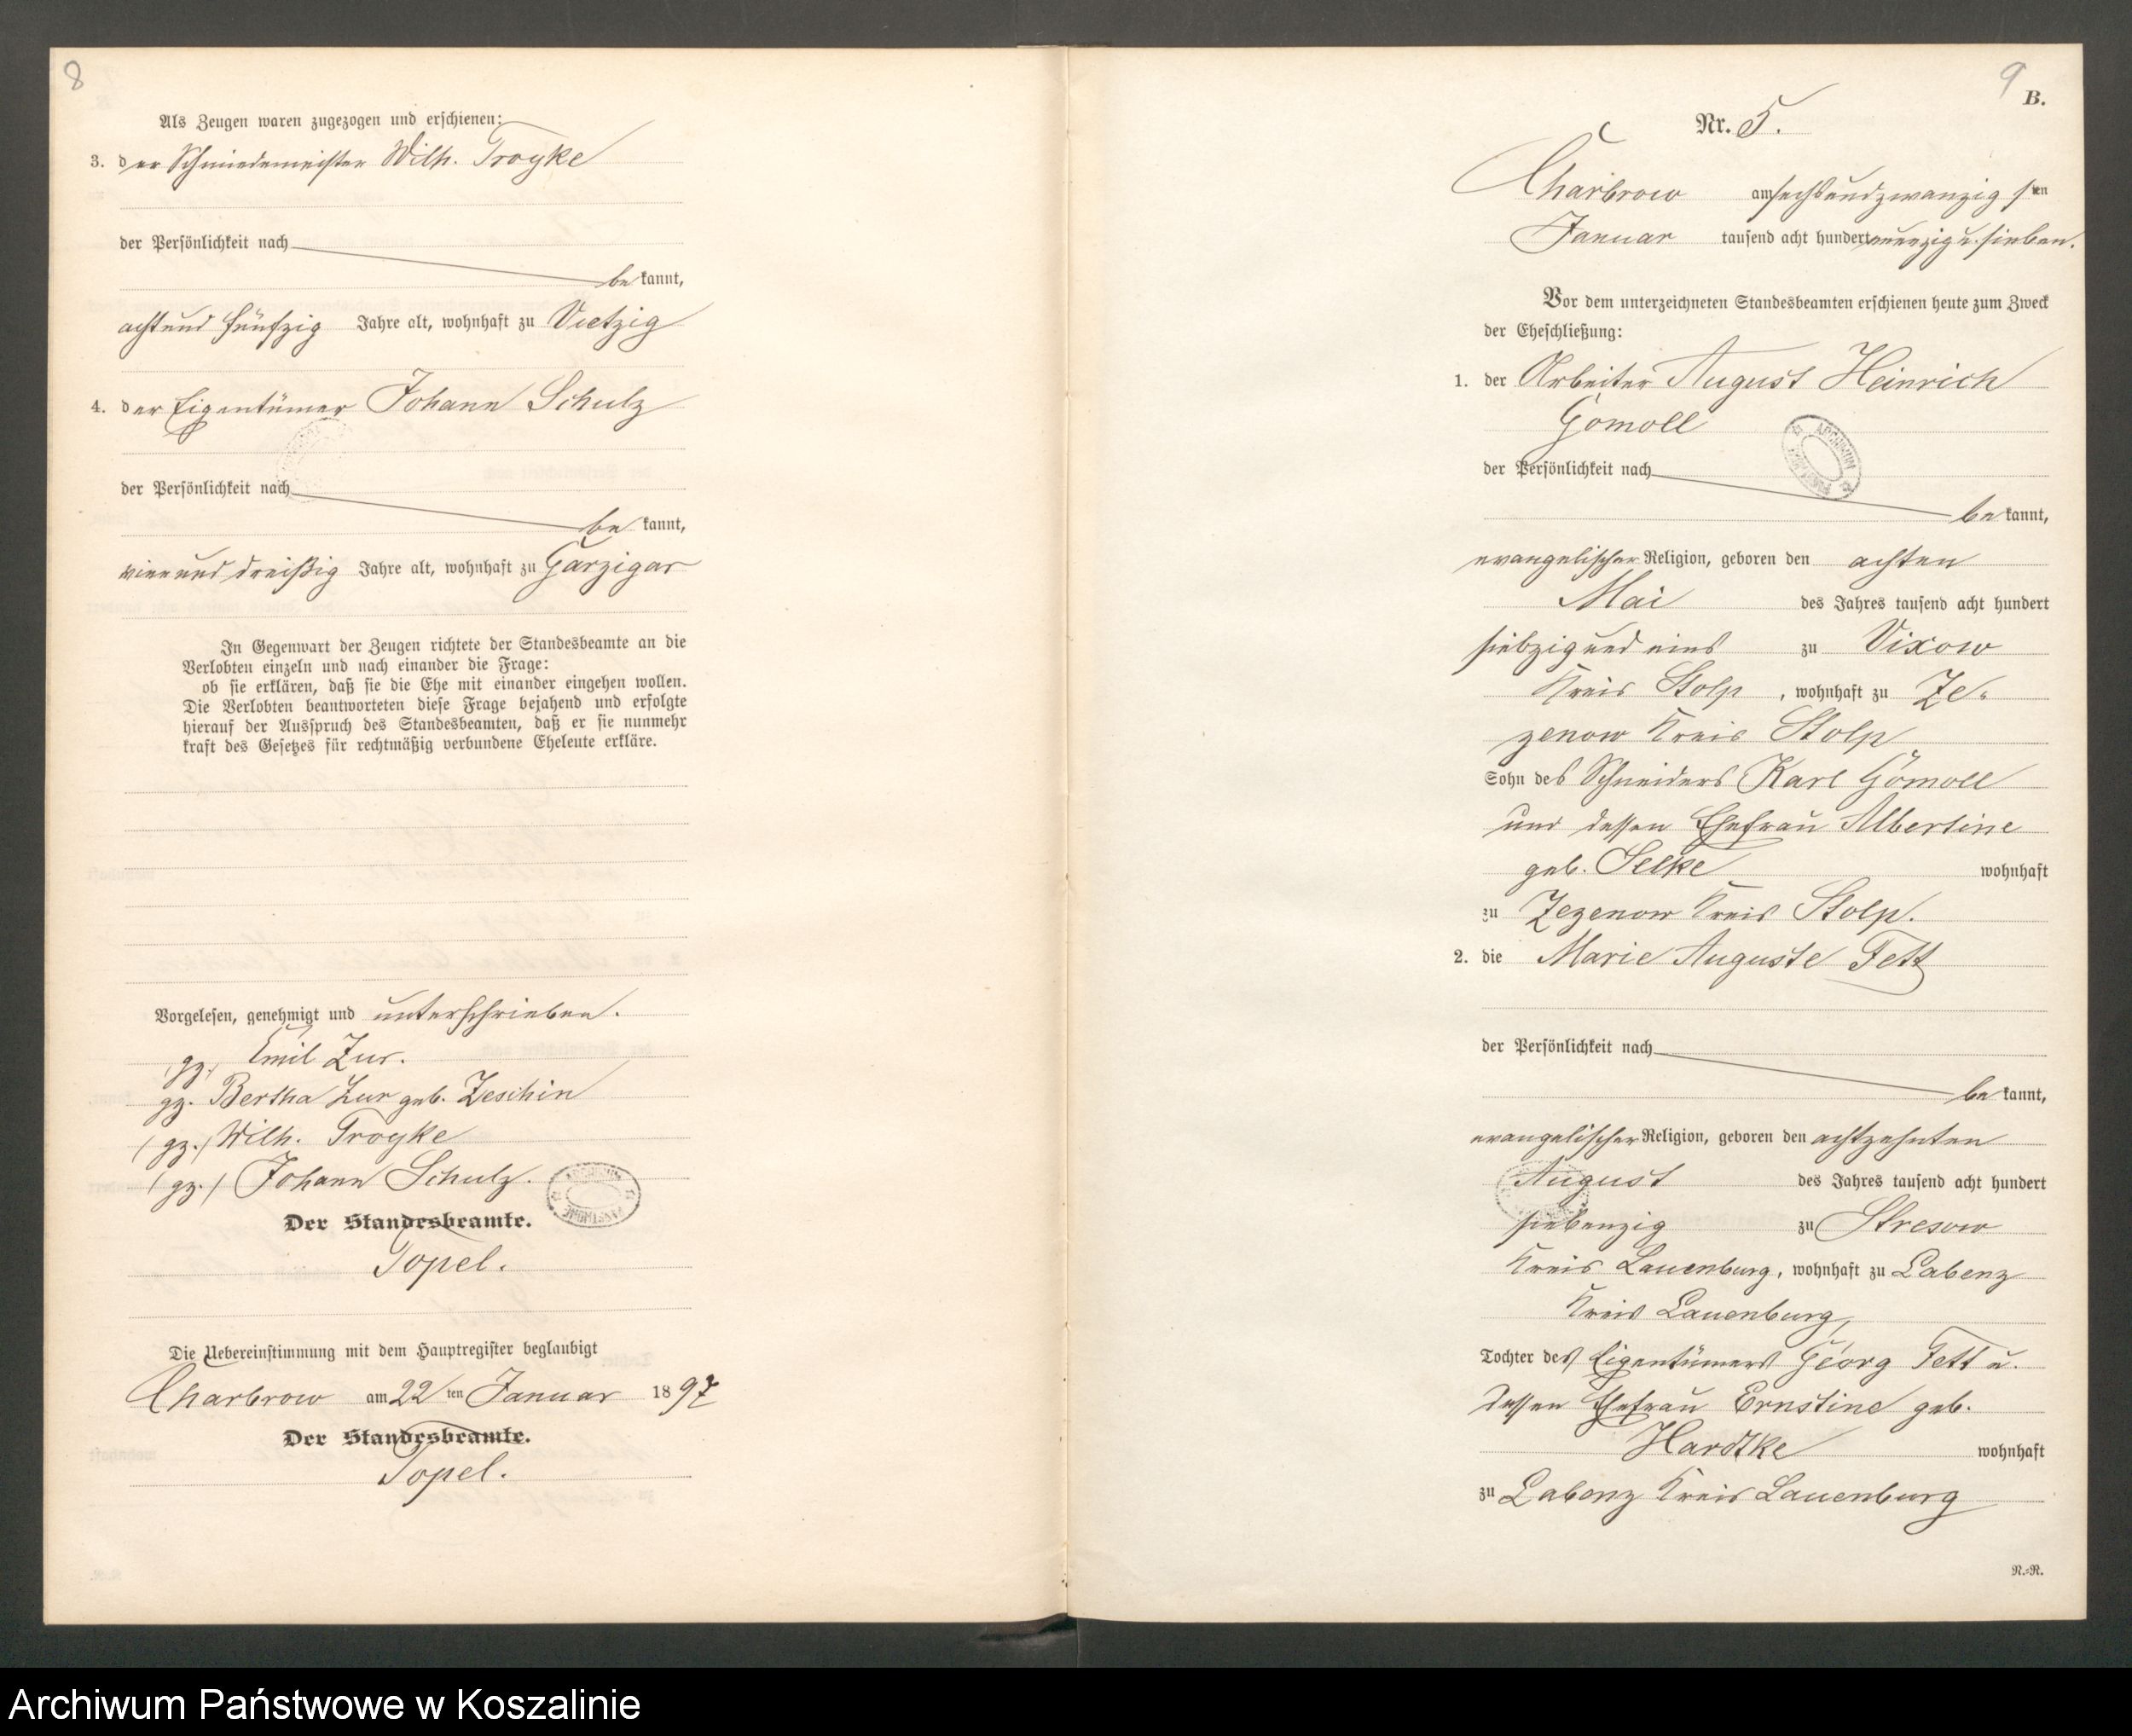 8
Als Zeugen waren zugezogen und erschienen:
3. der Schmiedemeister Wilh. Troyke
der Persönlichkeit nach
bekannt,
achtund fünfzig Jahre alt, wohnhaft zu Vietzig
4. der Eigentümer Johann Schulz
der Persönlichkeit nach
be kannt,
vierund dreißig Jahre alt, wohnhaft zu Garzigar
In Gegenwart der Zeugen richtete der Standesbeamte an die
Verlobten einzeln und nach einander die Frage:
ob sie erklären, daß sie die Ehe mit einander eingehen wollen.
Die Verlobten beantworteten diese Frage bejahend und erfolgte
hierauf der Ausspruch des Standesbeamten, daß er sie nunmehr
kraft des Gesetzes für rechtmäßig verbundene Eheleute erkläre.
Vorgelesen, genehmigt und unterschrieben.
gz. Emil Zur.
gz. Bertha Zur geb. Zeschin
(gz.) Wilh. Troyke
(gz.) Johann Schulz.
Der Standesbeamte.
Topel.
Die Uebereinstimmung mit dem Hauptregister beglaubigt
Charbrow am 22 ten Januar 1897
Der Standesbeamte.
Topel.
9
B.
Nr. 5.
Charbrow am sechsundzwanzigsten
Januar tausend acht hundert neunzig u. sieben.
Vor dem unterzeichneten Standesbeamten erschienen heute zum Zweck
der Eheschließung:
1. der Arbeiter August Heinrich
Gomoll
der Persönlichkeit nach
be kannt,
evangelischer Religion, geboren den achten
Mai des Jahres tausend acht hundert
siebzig und eins zu Vixow
Kreis Stolp, wohnhaft zu Ze-
zenow Kreis Stolp
Sohn des Schneiders Karl Gomoll
und dessen Ehefrau Albertine
geb. Selke wohnhaft
zu Zezenow Kreis Stolp.
2. die Marie Auguste Fett
der Persönlichkeit nach
be kannt,
evangelischer Religion, geboren den achtzehnten
August des Jahres tausend acht hundert
siebenzig zu Stresow
Kreis Lauenburg, wohnhaft zu Labenz
Kreis Lauenburg,
Tochter des Eigentümers Georg Fett u.
dessen Ehefrau Ernstine geb.
Hardtke wohnhaft
zu Labenz Kreis Lauenburg
N.=R.
Archiwum Państwowe w Koszalinie